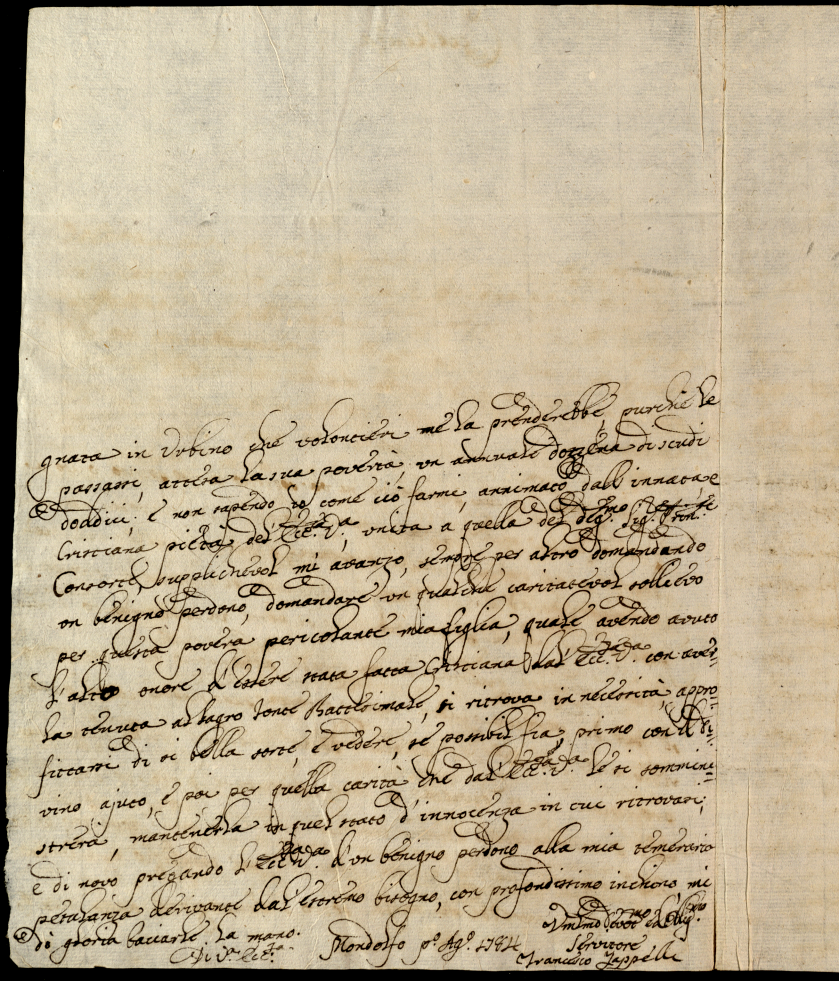 gnata in Urbino che volontieri me la prenderebbe, purche le
passassi, attesa la sua povertà un annuale dozzena di scudi
dodici; e non sapendo io come ciò farmi, annimato dall'innata e
Cristiana pietà dell'Ecc.za V.a, unita a quella del deg.mo Sig. Prin.
Consorte, supplichevol mi avanzo, sempre per altro domandando
un benigno perdono, domandare un qualche caritatevol sollievo
per questa povera pericolante mia figlia, quale avendo avuto
l'alto onore d'essere stata fatta Cristiana dall'Ecc.za V.a con aver
la tenuta al Sagro Fonte Battesimale, si ritrova in necessità appro
fittarsi di si bella sorte, e vedere, se possibil fia, primo con il Di
vino ajuto, e poi per quella carità che dall'Ecc.za V.a le si sommini
strerà, mantenerla in quel stato d'innocenza in cui ritrovasi;
e di novo pregando l'Ecc.za V.a d'un benigno perdono alla mia temeraria
petulanza derivante dal estremo bisogno, con profondissimo inchino mi
di gloria baciarle la mano.
Di V.a Ecc.za
Mondolfo p.o Ag.o 1784
Umilmo Devot.mo ed Obblig.mo
Servitore
Francesco Zappelli